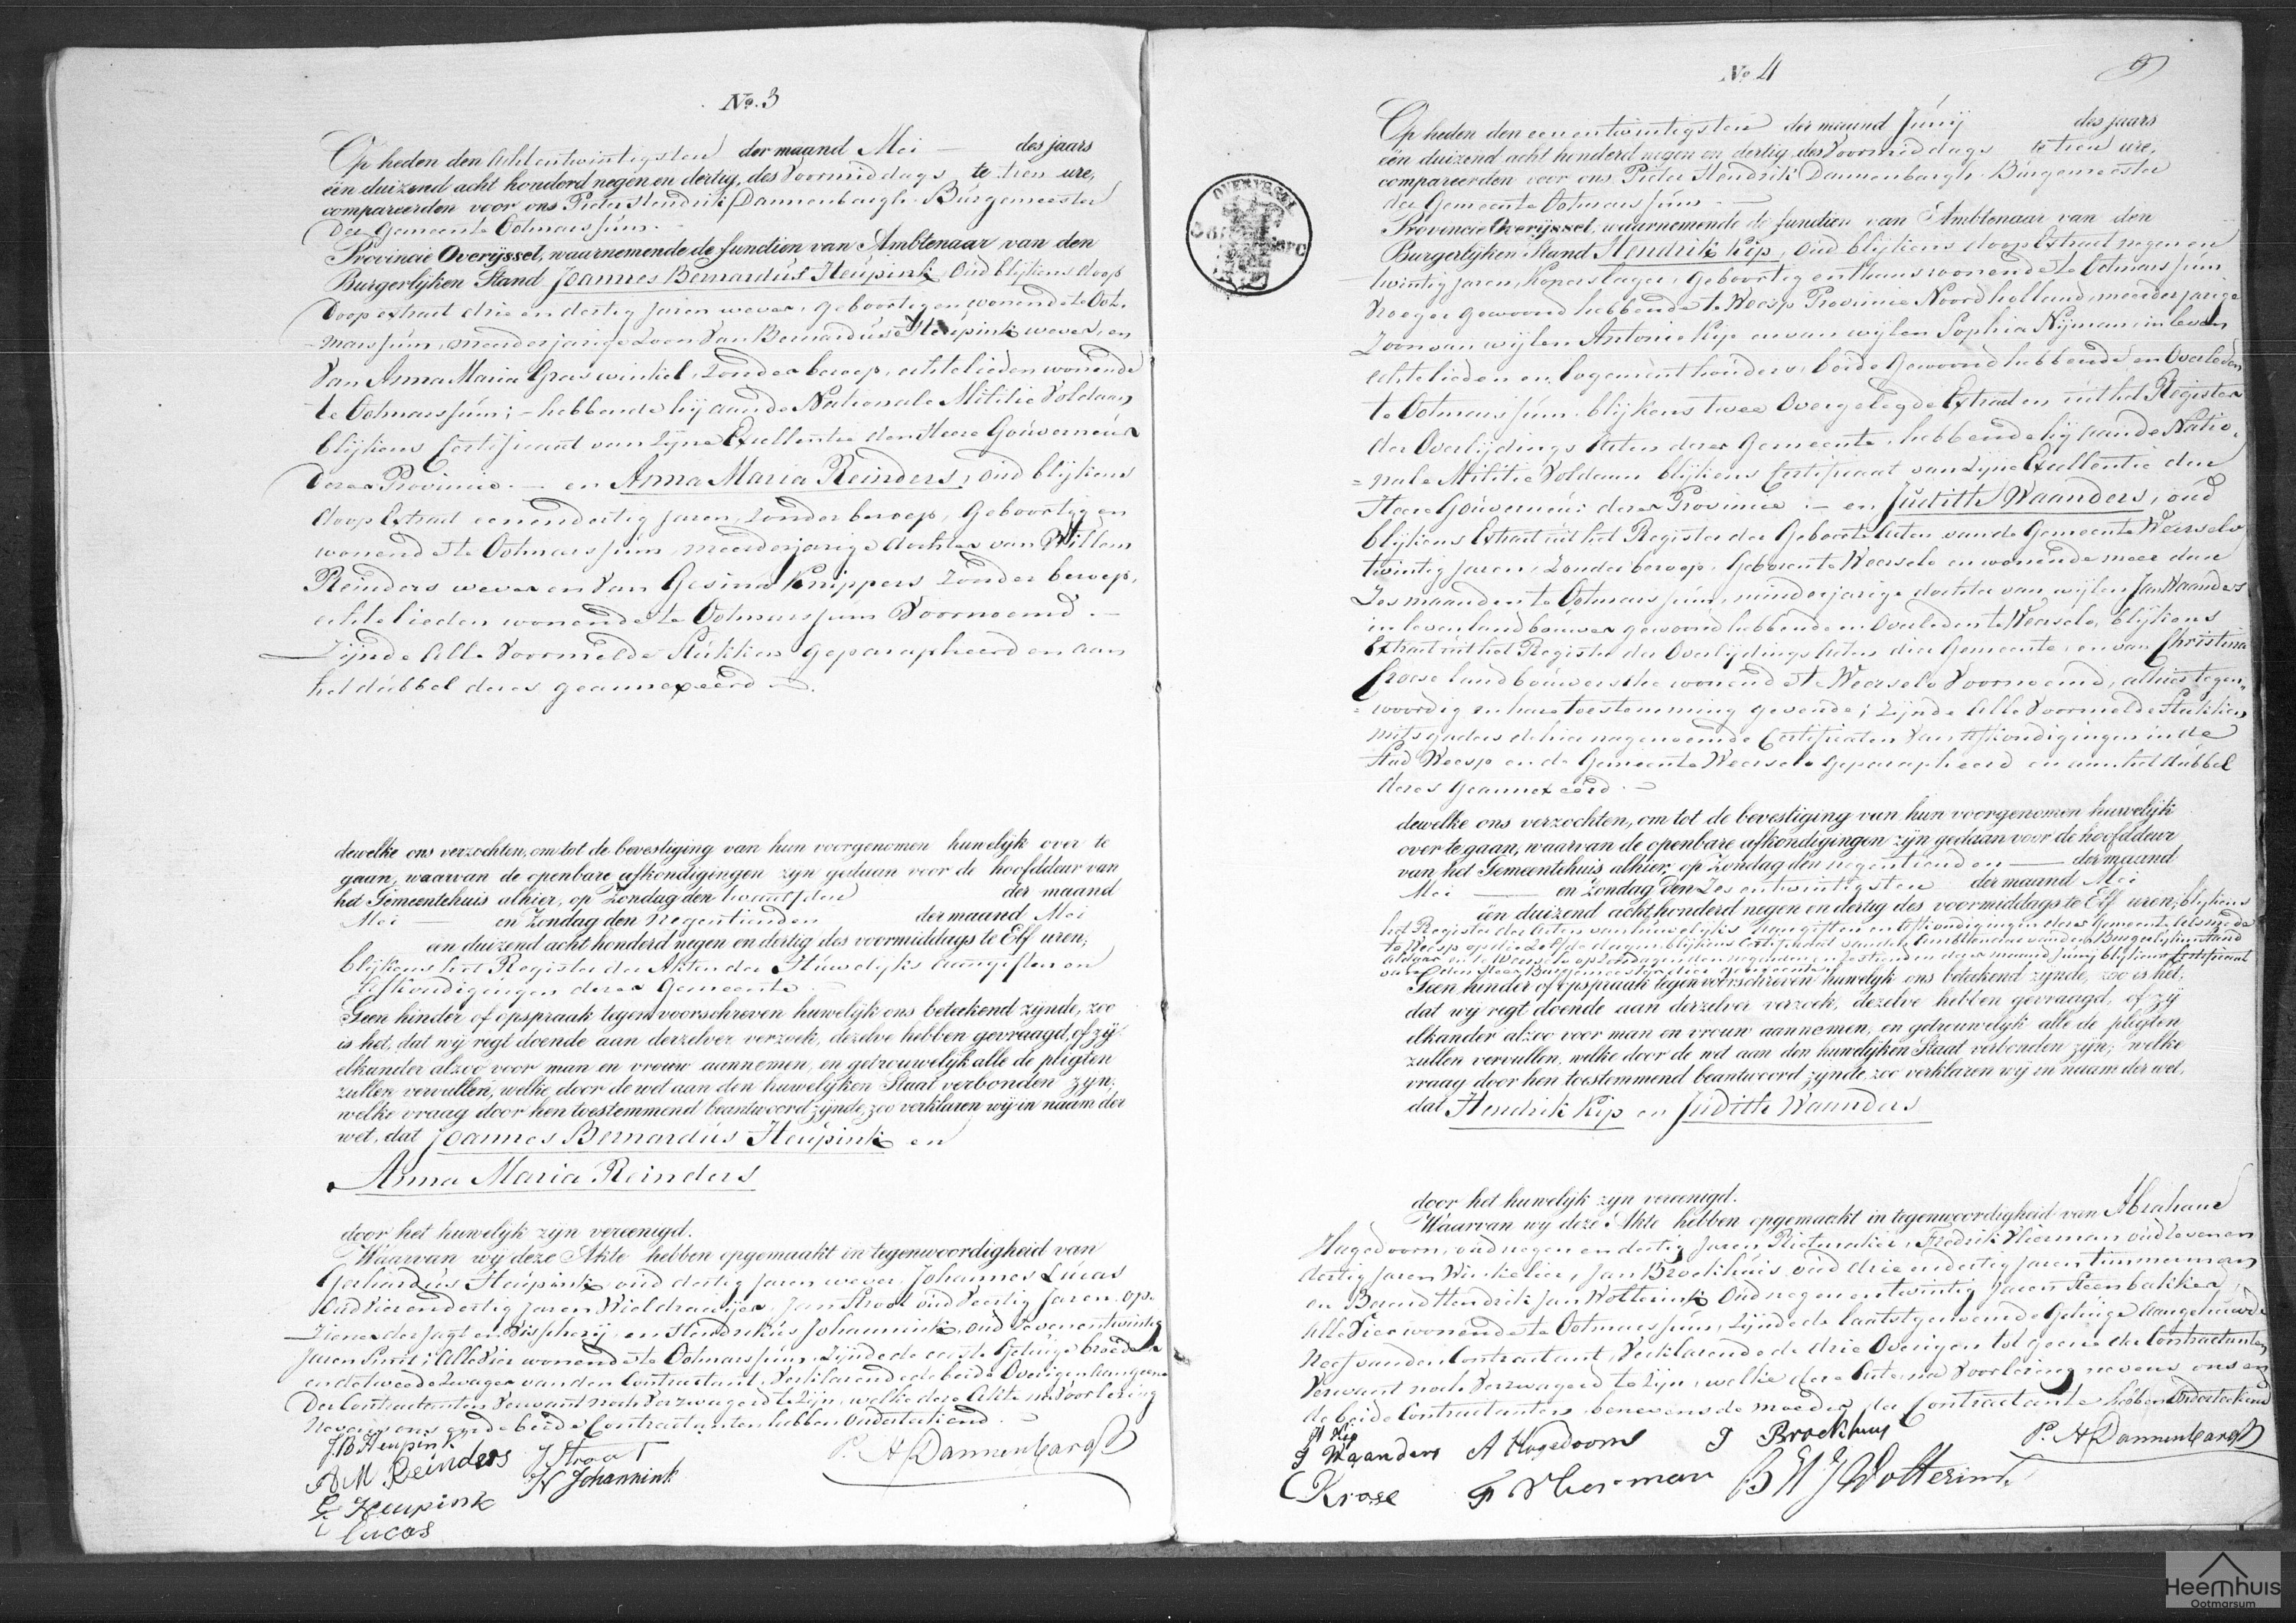 No. 3
Op heden den achtentwintigsten der maand Mei — des jaars
een duizend acht honderd negen en dertig, des Voormiddags te tien ure,
compareerden voor ons Pieter Hendrik Dannenbargh Burgemeester
der Gemeente Ootmarssum
Provincie Overijssel, waarnemende de functien van Ambtenaar van den
Burgerlijken Stand Joannes Bernardus Heupink, oud blijkens doop
Doop extract drie en dertig Jaren wever, geboortig en wonende te Oot-
-marssum, meerderjarige Zoon van Bernardus Heupink wever, en
van Anna Maria Graswinkel, zonder beroep, echtelieden wonende
te Ootmarssum; - hebbende hij aan de Nationale Militie voldaan
blijkens Certificaat van Zijne Excellentie den Heere Gouverneur
dezer Provincie. — en Anna Maria Reinders, oud blijkens
doop Extract eenendertig Jaren, zonder beroep, Geboortig en
wonende te Ootmarssum, meerderjarige dochter van Willem
Reinders wever en van Gesina Knippers zonder beroep,
echtelieden wonende te Ootmarssum Voornoemd. —
Zijnde alle Voormelde Stukken geparapheerd en aan
het dubbel dezes geannexeerd.
dewelke ons verzochten, om tot de bevestiging van hun voorgenomen huwelijk over te
gaan, waarvan de openbare afkondigingen zyn gedaan voor de hoofddeur van
het Gemeentehuis alhier, op Zondag den twaalfden der maand
Mei — en Zondag den Negentienden der maand Mei
een duizend acht honderd negen en dertig des voormiddags te Elf uren;
blijkens het Register der Akten der Huwelijks aangiften en
Afkondigingen dezer Gemeente
Geen hinder of opspraak tegen voorschreven huwelyk ons beteekend zijnde, zoo
is het, dat wij regt doende aan derzelver verzoek, dezelve hebben gevraagd, of zij
elkander alzoo voor man en vrouw aannemen, en getrouwelyk alle de pligten
zullen vervullen, welke door de wet aan den huwelyken Staat verbonden zyn;
welke vraag door hen toestemmend beantwoord zijnde, zoo verklaren wij in naam der
wet, dat Joannes Bernardus Heupink en
Anna Maria Reinders
door het huwelyk zijn vereenigd.
Waarvan wij deze Akte hebben opgemaakt in tegenwoordigheid van
Gerhardus Heupink oud dertig Jaren wever, Johannes Lucas
Oud Vierendertig Jaren Wieldraaijer, Jan Straat oud Veertig Jaren op-
Ziener der Jagt en Visscherij, en Hendrikus Johannink, oud Zevenentwintig
Jaren Smit; Alle Vier wonende te Ootmarssum, Zijnde de eerste Getuige broeder
en de tweede Zwager van den Contractant, Verklarende de beide Overigen aan geene
der Contractanten Verwant noch Verzwagerd te Zijn, welke deze Akte na Voorlezing
nevens ons en de beide Contractanten hebben Ondertekend.
J B Heupink
A M Reinders J Straat
G Heupink H Johannink
Lucas
P. H Dannenbargh
No 4
9
Op heden den een en twintigsten der maand Junij des jaars
een duizend acht honderd negen en dertig, des Voormiddags te tien ure,
compareerden voor ons Pieter Hendrik Dannenbargh Burgemeester
der Gemeente Ootmarssum
Provincie Overijssel, waarnemende de functien van Ambtenaar van den
Burgerlijken Stand Hendrik Kip, Oud blijkens doop Extract negen en
twintig Jaren, Koperslager, Geboortig en thans wonende te Ootmarssum
Vroeger gewoond hebbende te Weesp Provincie Noordholland, meerderjarige
Zoon van wijlen Antonie Kip en van wijlen Sophia Nijman, in leven
echtelieden en logementhouders, beide Gewoond hebbende en Overleden
te Ootmarssum blijkens twee Overgelegde Extracten uit het Register
der Overlijdings Akten dezer Gemeente, hebbende hij aan de Natio-
nale Militie Voldaan blijkens Certificaat van Zijne Excellentie den
Heere Gouverneur dezer Provincie: — en Judith Waanders, oud
blijkens Extract uit het Register der Geboorte Akten van de Gemeente Weerselo
twintig Jaren, Zonder beroep, Geboren te Weerselo en wonende meer dan
Zes maanden te Ootmarssum, minderjarige dochter van wijlen Jan Waanders
in leven landbouwer gewoond hebbende en Overleden te Weerselo, blijkens
Extract uit het Register der Overlijdings Akten dier Gemeente, en van Christina
Croese landbouwersche wonende te Weerselo Voornoemd, alhier tegen-
woordig en hare toestemming gevende; Zijnde Alle Voormelde Stukken
mitsgaders de hier nagenoemde Certificaten Van Afkondigingen in de
Stad Weesp en de Gemeente Weerselo Geparapheerd en aan het dubbel
dezes Geannexeerd. —
dewelke ons verzochten, om tot de bevestiging van hun voorgenomen huwelijk
over te gaan, waarvan de openbare afkondigingen zijn gedaan voor de hoofddeur
van het Gemeentehuis alhier, op Zondag den negentienden — der maand
Mei — en Zondag den Zes entwintigsten der maand Mei
een duizend acht honderd negen en dertig des voormiddags te Elf uren, blijkens
het Register der Akten van huwelijks aangiften en Afkondigingen dezer Gemeente Alsmede
te Weesp op die Zelfde dagen blijkens Certificaat van den Ambtenaar van den Burgerlijken Stand
aldaar en te Weerselo op Zondagen den negenden en Zestienden dezer maand Junij blijkens Certificaat
van den Heer Burgemeester dier Gemeente
Geen hinder of opspraak tegen voorschreven huwelyk ons beteekend zynde, zoo is het,
dat wij regt doende aan derzelver verzoek, dezelve hebben gevraagd, of zij
elkander alzoo voor man en vrouw aannemen, en getrouwelyk alle de pligten
zullen vervullen, welke door de wet aan den huwelijken Staat verbonden zijn; welke
vraag door hen toestemmend beantwoord zynde, zoo verklaren wy in naam der wet,
dat Hendrik Kip en Judith Waanders
door het huwelyk zyn vereenigd.
Waarvan wy deze Akte hebben opgemaakt in tegenwoordigheid van Abraham
Hagedoorn, oud negen en dertig Jaren Rietmaker, Fredrik Vlierman oud Zeven en
dertig Jaren Winkelier, Jan Broekhuis oud drie en dertig Jaren timmerman
en Berend Hendrik Jan Wolterink Oud negen entwintig Jaren Steenbakker,
Alle Vier wonende te Ootmarssum, Zijnde de laatstgenoemde Getuige Aangehuwde
Neef van den Contractant, Verklarende de drie Overigen tot geene der Contractanten
Verwant noch Verzwagerd te Zijn, welke deze Akte na Voorlezing nevens ons en
de beide Contractanten benevens de moeder der Contractante hebben Ondertekend
H Kip
J Waanders A Hagedoorn J Broekhuis P. H Dannenbargh
C Krose F Vlierman B H J Wolterink
OVERYSSEL
Heemhuis
Ootmarsum